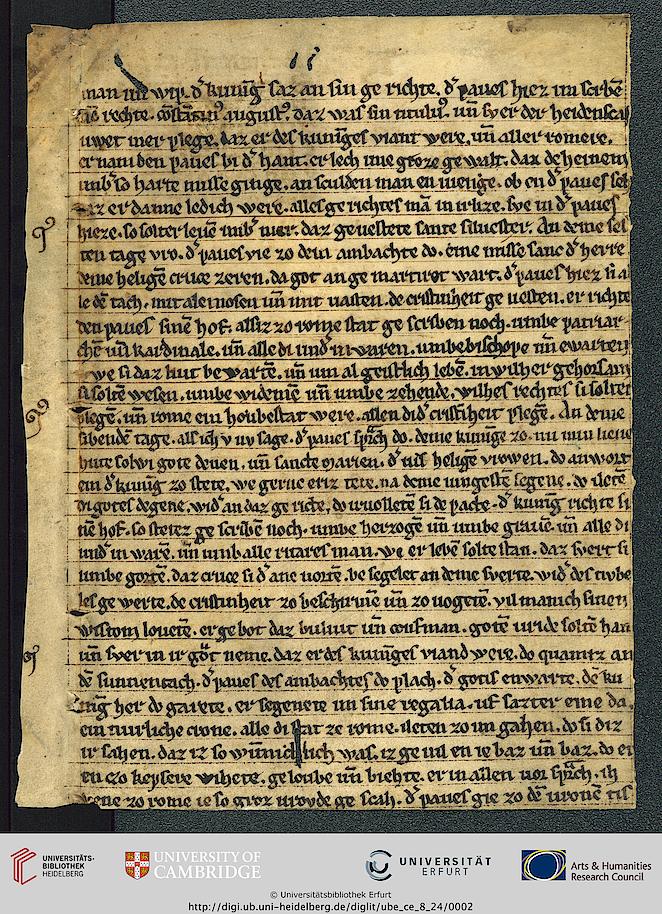 man un wip. d᷎ kunig saz an sin ge richte. d᷎ paues hiez im scrībē
rechte. augustꝰ. daz was sin titulꝰ. un̄ swer der
mer plege. daz er des kuniges viant were. un̄ aller romere.
er nam den paues bi d᷎ hant. er lech ime groze ge walt. daz deheinem
so harte misse ginge. an sculden man en uienge. ob en d᷎ paues
er danne ledich were. alles ge richtes in irlize. swe in d᷎ paues
hieze. so solter daz geuestete sante siluester. An deme
ten tage vro. d᷎ paues vie zo dem ambachte do. eine misse sanc d᷎ herre
deme heligen cruce zeren. da got an ge martirot wart. d᷎ paues hiez
le dē tach. mit alemosen un̄ mit uasten. de cristinheit ge uesten. er richte
den paues sinē hof. alsiz zo rome stat ge scriben noch. umbe patriar
chē un̄ kardinale. un̄ alle di und᷎ in waren. umbe bischope un̄ ewarten
we si daz hut be wartē. un̄ um al geistlich lebē. in wilher gehorsam
si soltē wesen. umbe widemē un̄ umbe zehende. wilhes rechtes si solten
plegē. un̄ rome ein houbestat were. allen di d᷎ cristīheit plege. An deme
sibendē tage. als ich v nv sage. d᷎ paues sprach do. deme kunige zo. nu min lieue
hute solwi gote deuen. un̄ sancte marien. d᷎ uil heligē vrowen. do anwort
ein d᷎ kunig zo stete. we gerne eriz tete. na deme
di gotes degene. wid᷎ an daz ge richte. do si de pacte. d᷎ kunig richte si
nē hof. so stetez ge scribē noch. umbe herzogē un̄ umbe grauē. un̄ alle di
und᷎ in warē. un̄ umb alle ritares man. we er lebē solte stan. daz swert si
umbe gortē. daz cruce si d᷎ ane be segelet an deme swerte. wid᷎ des tiube
les ge werte. de cristinheit zo beschirmē un̄ zo uogetē. vil manich sinen
wistom louetē. er ge bot daz buliut un̄ coufman. gotē uride soltē han
un̄ swer in ir gůt neme. daz er des kuniges viand were. do quamiz an
dē sunnentach. d᷎ paues des ambachtes do plach. d᷎ gotis ewarte. dē ku
nig her do garete. er segenete im sine regalia. uf sazter eine da.
ein tiurliche crone. alle di stat ze rome. ileten zo im gahen. do si diz
ir sahen. daz iz so wunich lich was. iz ge uil en ie baz un̄ baz. do er
en czo keysere wihete. geloube un̄ biehte. er in allen uor sprach. ih
wene zo rome ie so groz vroyde ge scah. d᷎ paues gie zo dē vronē tis
UNIVERSITÄTS-
BIBLIOTHEK
HEIDELBERG
UNIVERSITY OF
CAMBRIDGE
UNIVERSITÄT
ERFURT
Arts & Humanities
Research Council
© Universitätsbibliothek Erfurt
http://digi.ub.uni-heidelberg.de/diglit/ube_ce_8_24/0002